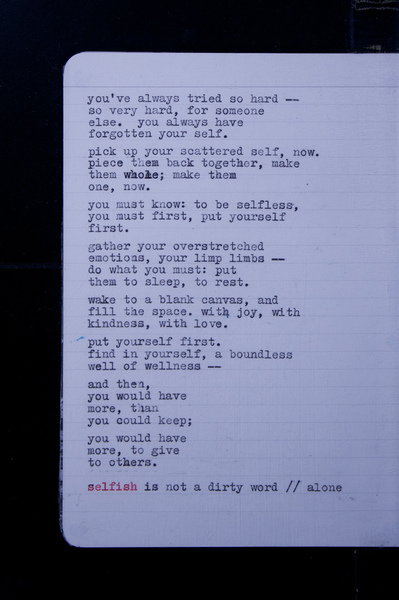 you've always tried so hard --
so very hard, for someone
else.  you always have
forgotten your self.
pick up your scattered self, now.
piece them back together, make
them whole; make them
one, now.
you must know: to be selfless,
you must first, put yourself
first.
gather your overstretched
emotions, your limp limbs --
do what you must: put
them to sleep, to rest.
wake to a blank canvas, and
fill the space. with joy, with
kindness, with love.
put yourself first.
find in yourself, a boundless
well of wellness --
and then,
you would have
more, than
you could keep;
you would have
more, to give
to others.
selfish is not a dirty word // alone